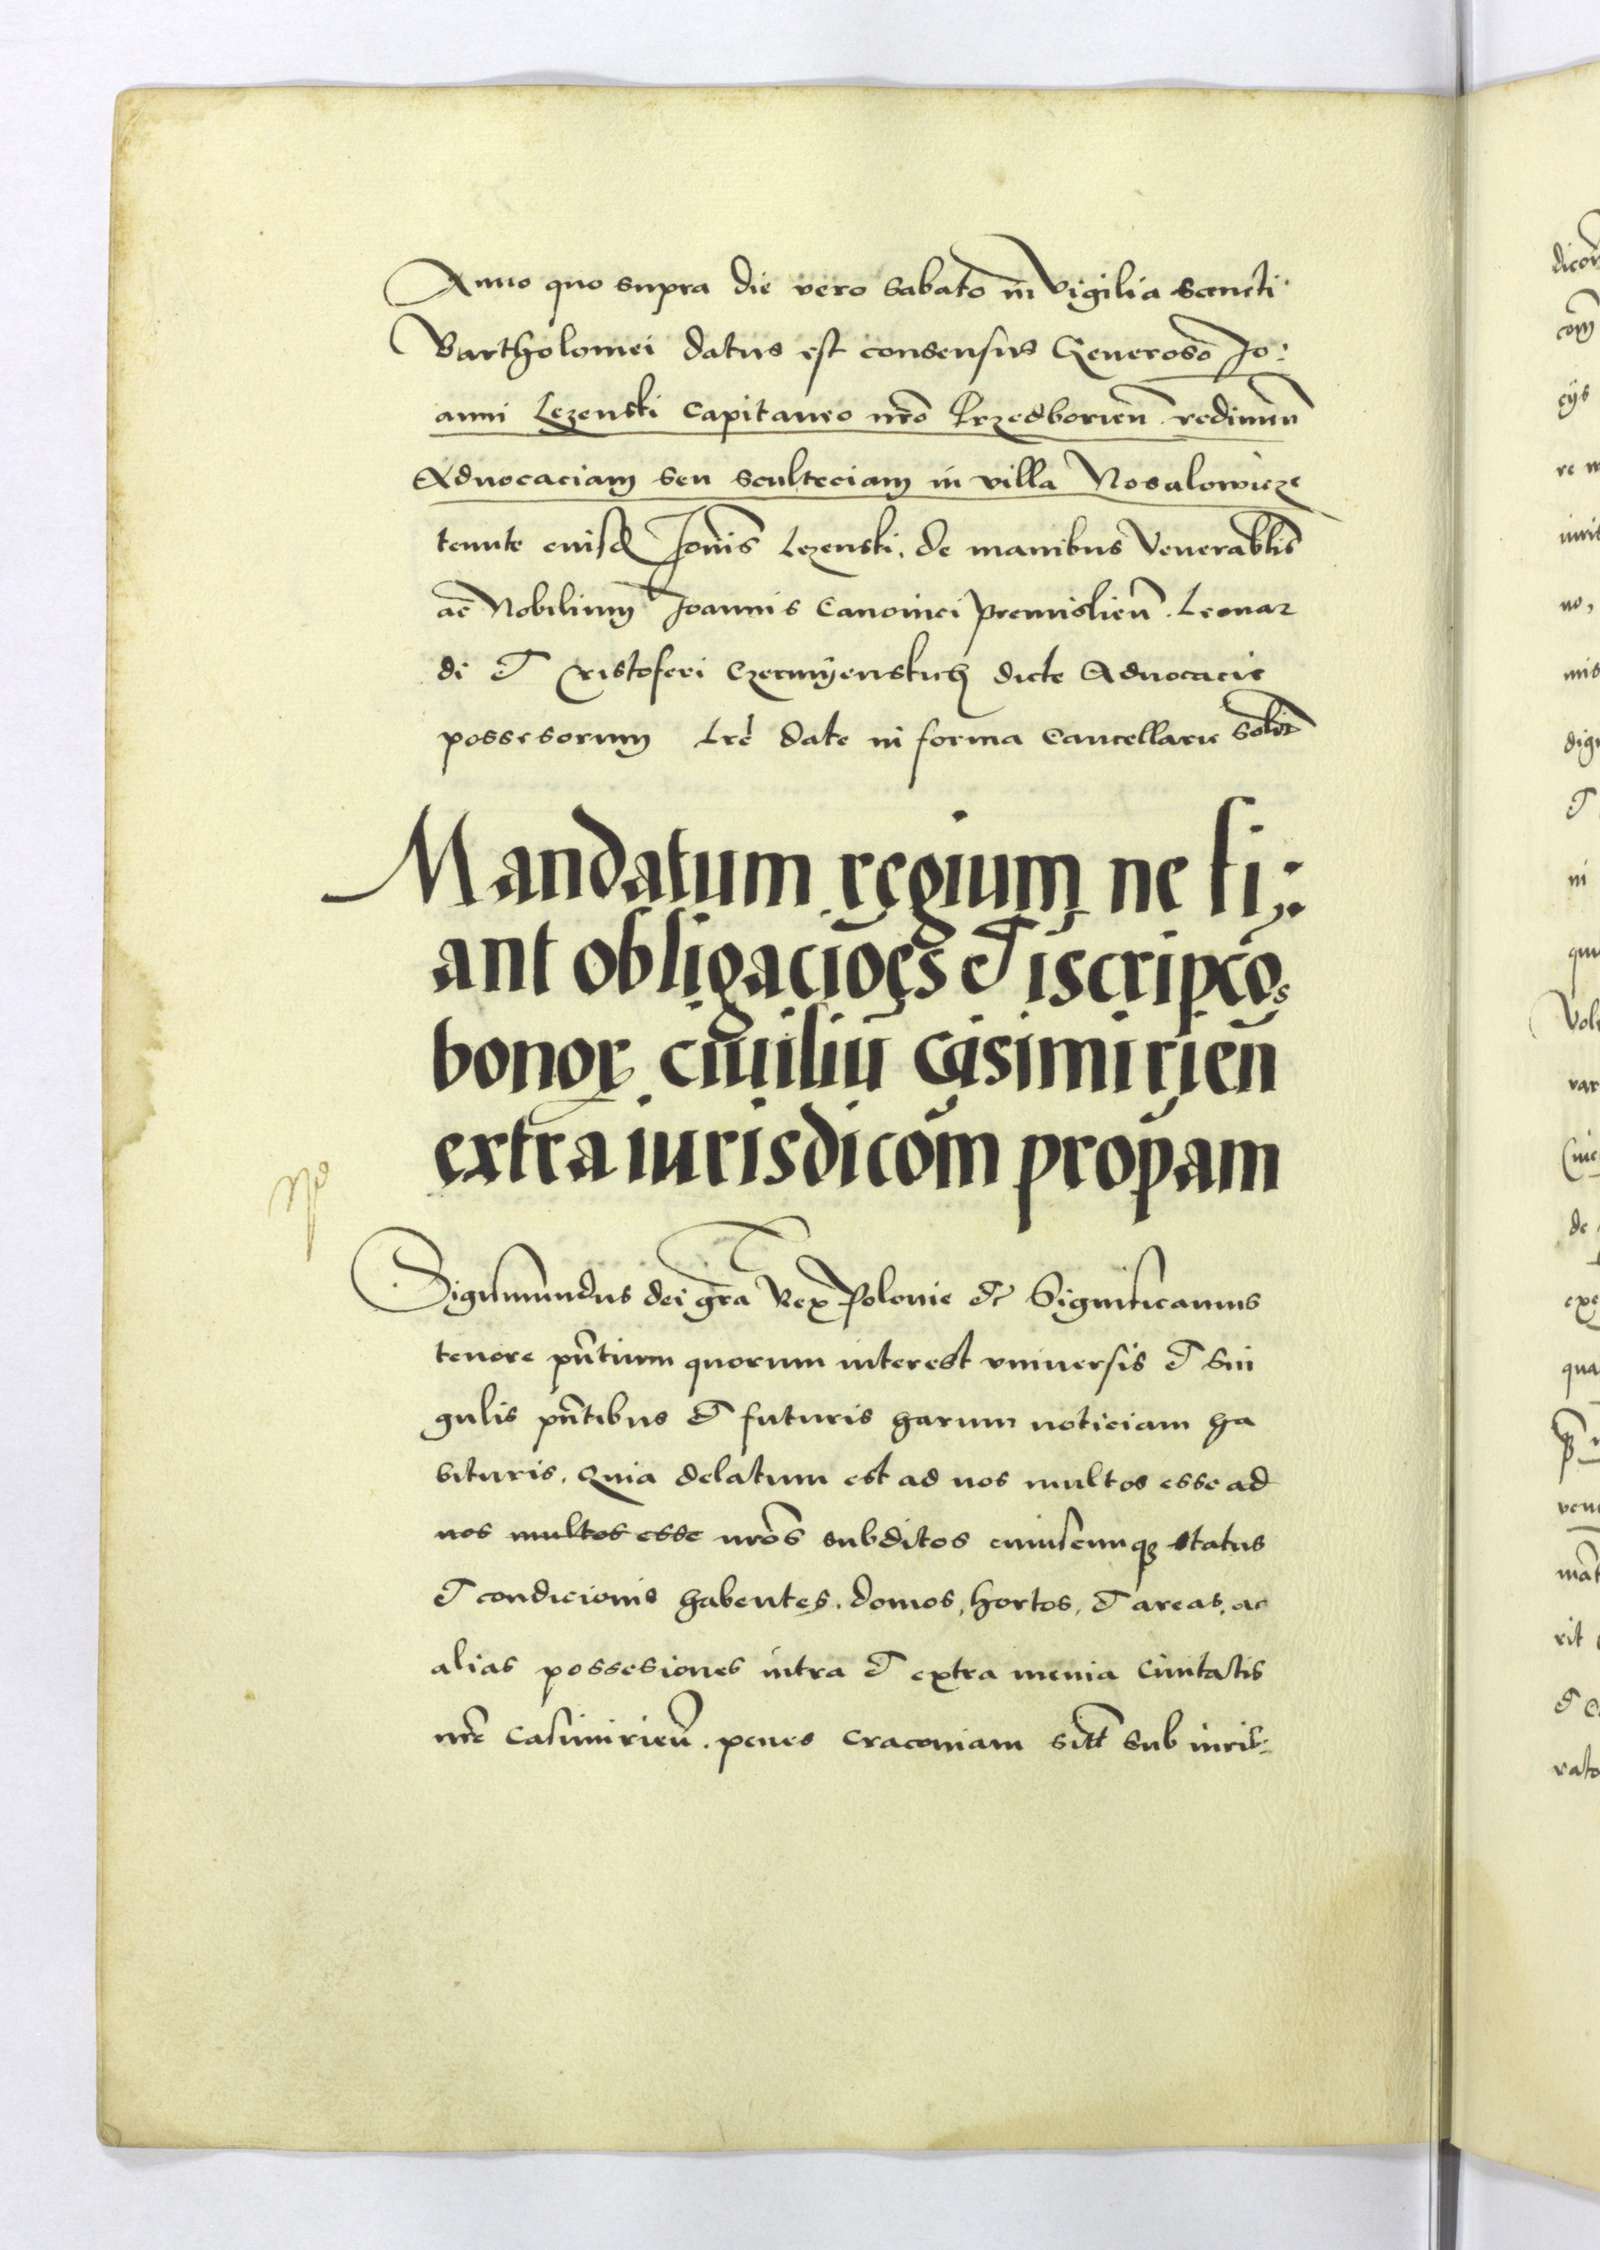 Anno quo supra die vero sabato in vigilia sancti
Bartholomei datus est consensus Generoso Jo:
anni Lezenski capitaneo nr̃o Przedborien̄ . redimen̄
Advocaciam seu sculteciam in villa Nosalowicze
tenute eiusd Joañis Lezenski . de manibus Venerabl̄is
ac Nobilium Joannis Canonici premislien̄ . Leonar
di et Cristoferi Czermyenskich dicte Advocacie
possesorum Lr̃e date in forma cancellarie solit̄
Mandatum regium ne fi:
ant obligacioēs et īscripcōes
bonorꝝ civiliū Casimirien̄
extra iurisdicōm propam
No
Sigismundus dei gr̃a Rex Polonie etc Significamus
tenore pn̄tium quorum interest universis et sin
gulis pn̄tibus et futuris harum noticiam ha
bituris . Quia delatum est ad nos multos esse ad
nos multos esse nr̃os subditos cuiuscunqꝫ status
et condicionis habentes . domos , hortos , et areas , ac
alias possesiones intra et extra menia civitatis
nr̃e Casimirien̄ . penes Cracoviam sitt̄ sub iuris:
dicom̄
com̄
eijs
re
iuris
no,
mis
dign
et
in
qui
Volu
var
Cive
de
exe
qua
ven
mat
rit
et
rato